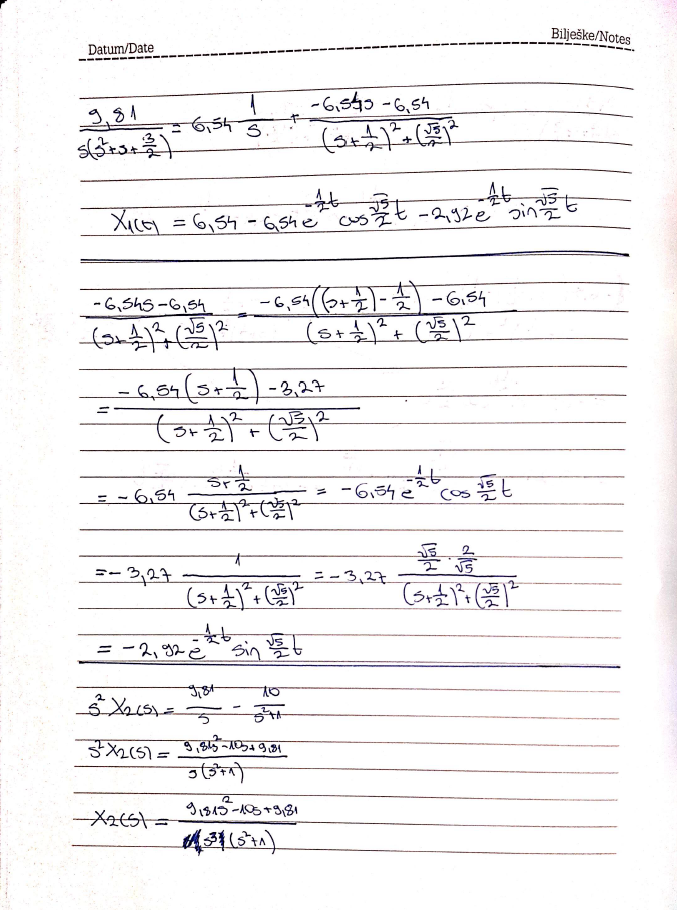 Datum/Date Bilješke/Notes
9,81 / s(s²+s+3/2) = 6,54 1/s + (-6,54s - 6,54) / ((s+1/2)² + (√5/2)²)
X₁(t) = 6,54 - 6,54 e^(-1/2 t) cos √5/2 t - 2,92 e^(-1/2 t) sin √5/2 t
(-6,54s - 6,54) / ((s+1/2)² + (√5/2)²) = (-6,54((s+1/2) - 1/2) - 6,54) / ((s+1/2)² + (√5/2)²)
= (-6,54(s+1/2) - 3,27) / ((s+1/2)² + (√5/2)²)
= -6,54 (s+1/2) / ((s+1/2)² + (√5/2)²) = -6,54 e^(-1/2 t) cos √5/2 t
= -3,27 1 / ((s+1/2)² + (√5/2)²) = -3,27 (√5/2 · 2/√5) / ((s+1/2)² + (√5/2)²)
= -2,92 e^(-1/2 t) sin √5/2 t
s² X₂(s) = 9,81/s - 10/(s²+1)
s² X₂(s) = (9,81s² - 10s + 9,81) / (s(s²+1))
X₂(s) = (9,81s² - 10s + 9,81) / (s³(s²+1))